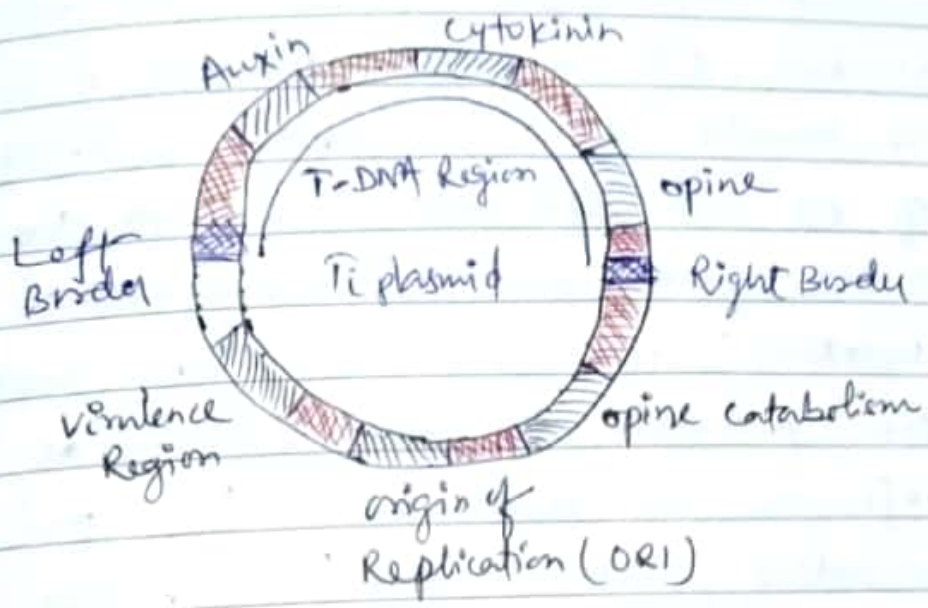 Cytokinin
Auxin
T-DNA Region
opine
Left
Border
Ti plasmid
Right Border
Virulence
Region
opine catabolism
origin of
Replication (ORI)